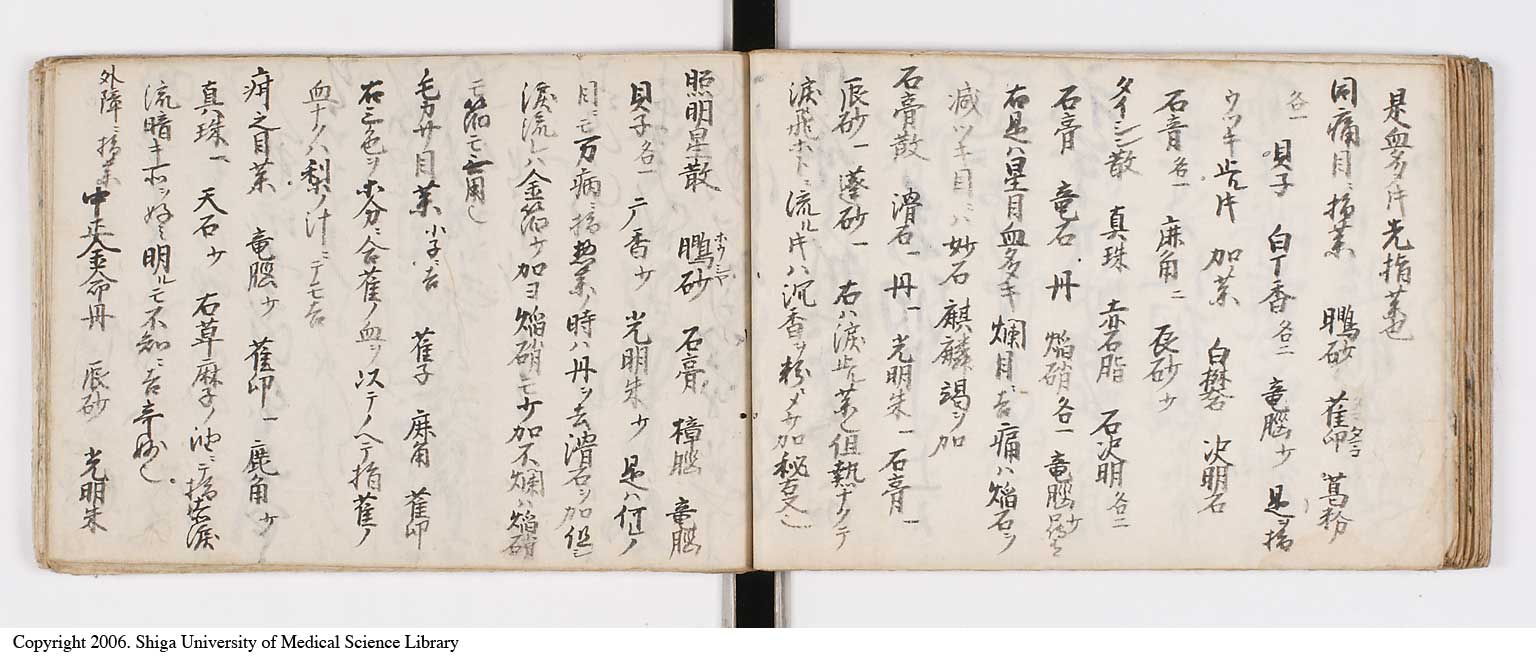 是血多キ片光指薬也
同痛目ニ指薬 鵬砂 萑印 葛粉
各一 貝子 白丁香各二 竜脳少 是ヲ指
ウツキ 片 加薬 白礬 决明石
石膏各一 麻角二 辰砂少
タイシン散 真珠 赤石脂 石决明各二
石膏 竜石 丹 焔硝各一 竜脳少
右是ハ星目血多キ爛目ニ吉痛ハ焔石ヲ
減ツキ目ニハ妙石麒麟竭ヲ加
石膏散 滑石一 丹一 光明朱一 石膏一
辰砂一 蓬砂一 右ハ涙 薬也但熱ナクテ
涙飛ホトニ流ル片ハ沉香ヲ粉メ少加秘
照明星散 鵬砂ホウシヤ 石膏 樟脳 竜脳
貝子各一 丁香少 光明朱少 是ハ何レノ
目ニモ万病ニ指熱薬ノ時ハ丹ヲ去滑石ヲ加但シ
涙流レハ金箔少加ヨ焔硝モ少加不爛ハ焔硝
モ箔モ無用也
毛カサ目薬 小子ニ吉 萑子 麻角 萑印
右三色ヲ等分ニ合萑ノ血ヲ以テノヘテ指萑ノ
血ナクハ梨ノ汁ニテモ吉
疳之目薬 竜脳少 萑印一 鹿角少
真珠一 天石少 右草麻子ノ油ニテ指 涙
流暗キ所ヲ好ミ明ルモ不知ニ吉奇妙也
外障ニ指薬 中正金命丹 辰砂 光明朱
Copyright 2006. Shiga University of Medical Science Library